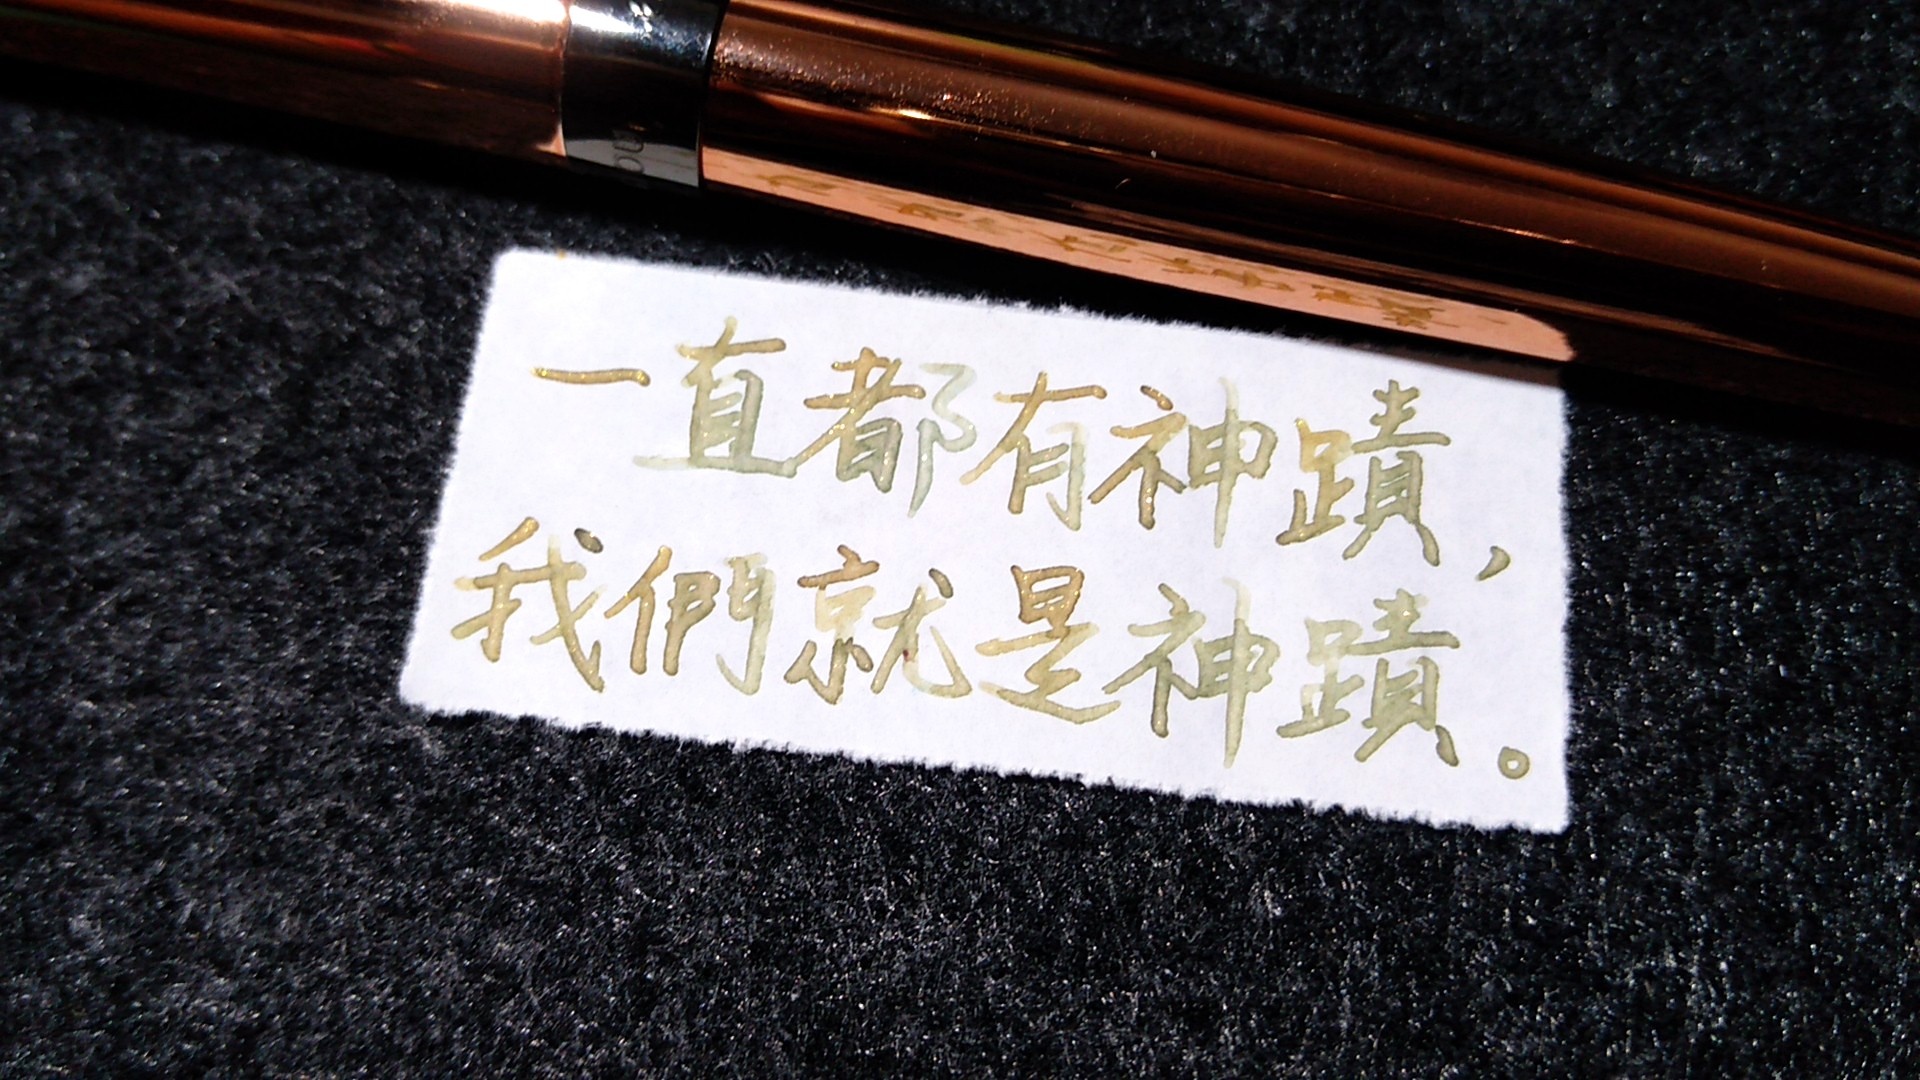 一直都有神蹟，
我們就是神蹟。